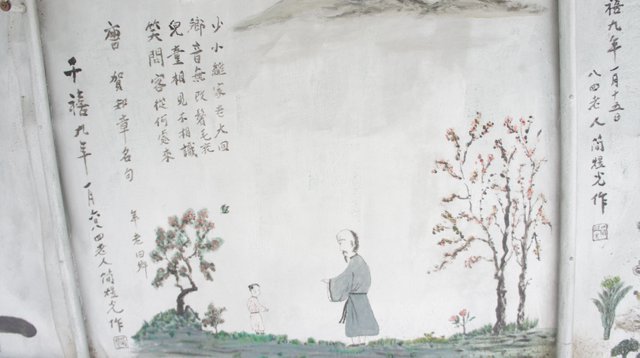 禧九年一月十五日
八四老人簡光作
少小離家老大回
鄉音無改鬢毛衰
兒童相見不相識
笑問客從何處來
唐賀知章名句
年老回鄉
千禧九年一月六八四老人簡光作